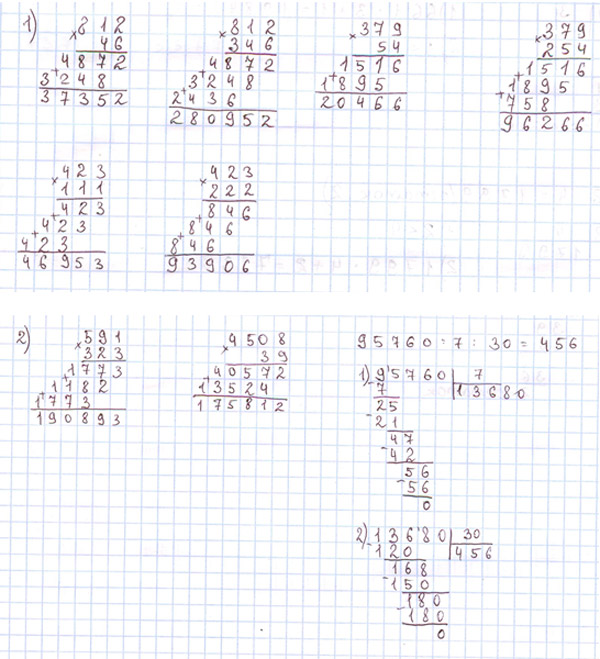 1)
×812
46
4872
+3248
37352
×812
346
4872
+3248
+2436
280952
×379
54
1516
+1895
20466
×379
254
1516
+1895
+758
96266
×423
111
423
+423
+423
46953
×423
222
846
+846
+846
93906
2)
×591
323
1773
+1182
+1773
190893
×4508
39
40572
+13524
175812
95760 : 7 : 30 = 456
1) 95760 | 7
-7 | 13680
25
-21
47
-42
56
-56
0
2) 13680 | 30
-120 | 456
168
-150
180
-180
0